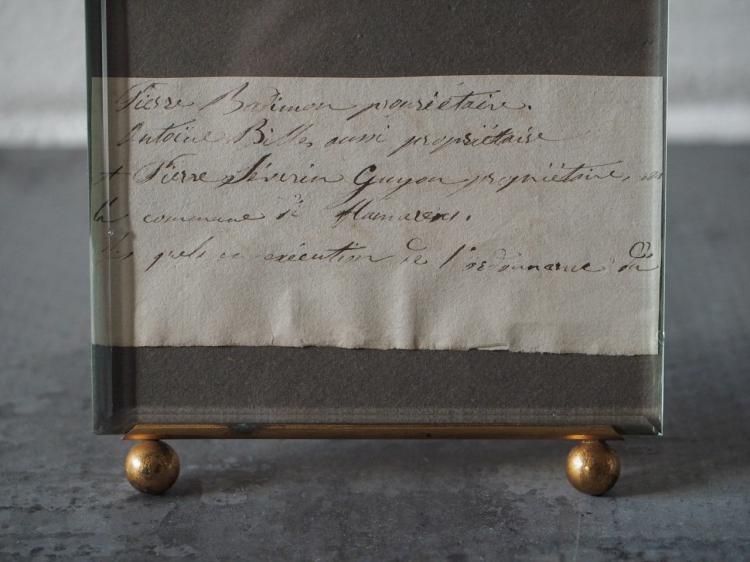 Pierre Bordimon propriétaire.
Antoine Billes aussi propriétaire
Pierre Séverin Guyon propriétaire,
la commune de
les quels en exécution de l'ordonnance du